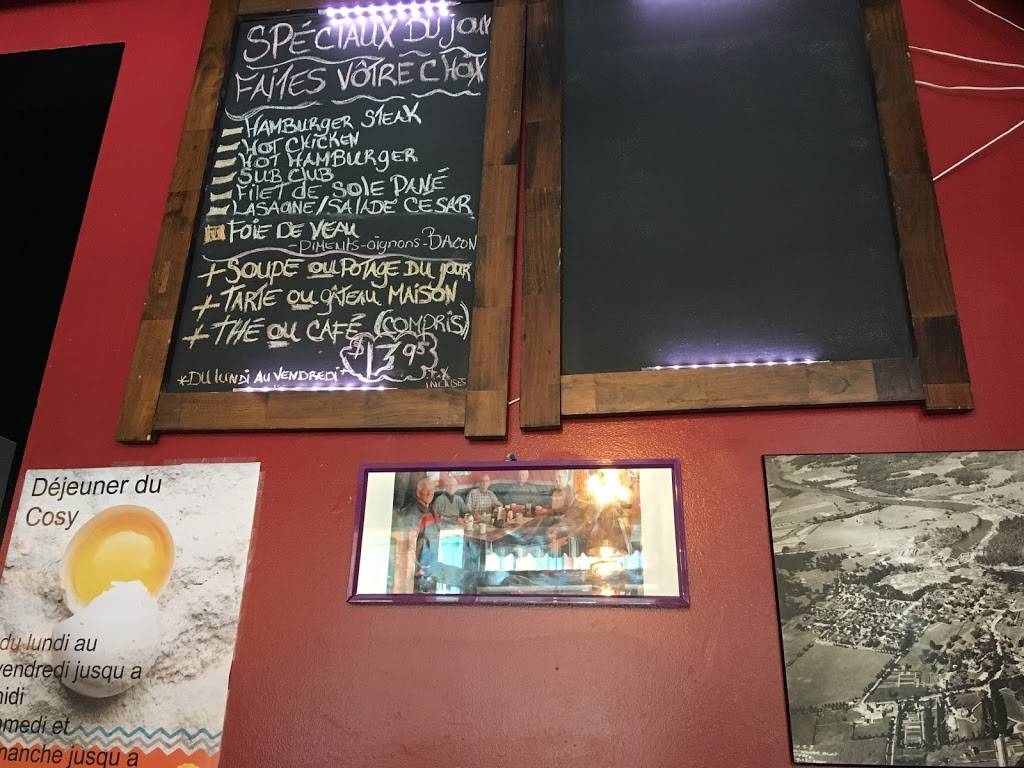 SPÉCIAUX DU JOUR
FAITES VÔTRE CHOIX
HAMBURGER STEAK
HOT CHICKEN
HOT HAMBURGER
SUB CLUB
FILET DE SOLE PANÉ
LASAGNE/SALADE CESAR
FOIE DE VEAU
-PIMENTS-oignons-BACON
+ SOUPE OU POTAGE DU JOUR
+ TARTE OU GÂTEAU MAISON
+ THÉ OU CAFÉ (COMPRIS)
$13.95
*DU LUNDI AU VENDREDI*
TX
INCLUSES
Déjeuner du
Cosy
du lundi au
vendredi jusqu a
midi
amedi et
manche jusqu a